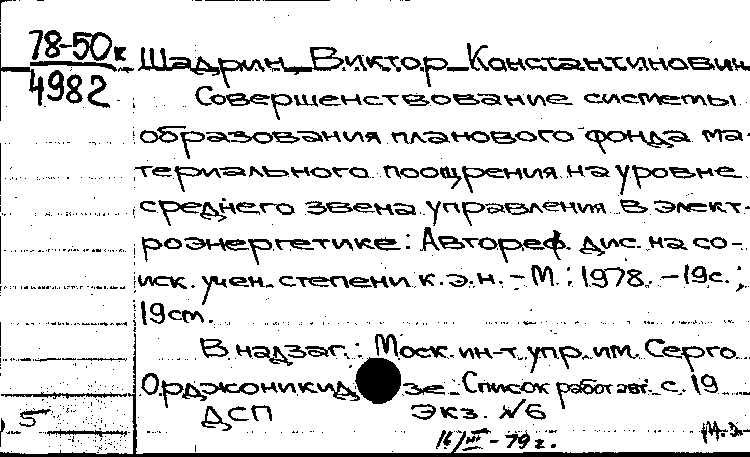 78-50к
4982
Шадрин, Виктор Константинович
Совершенствование системы
образования планового фонда ма-
териального поощрения на уровне
среднего звена управления в элект-
роэнергетике: Автореф. дис. на со-
иск. учен. степени к.э.н. - М.: 1978. - 19с.;
19cm.
В надзаг.: Моск. ин-т упр. им. Серго
Орджоникидзе. Список работ авт. с. 19
5 ДСП Экз. №6
16/III - 79 г.